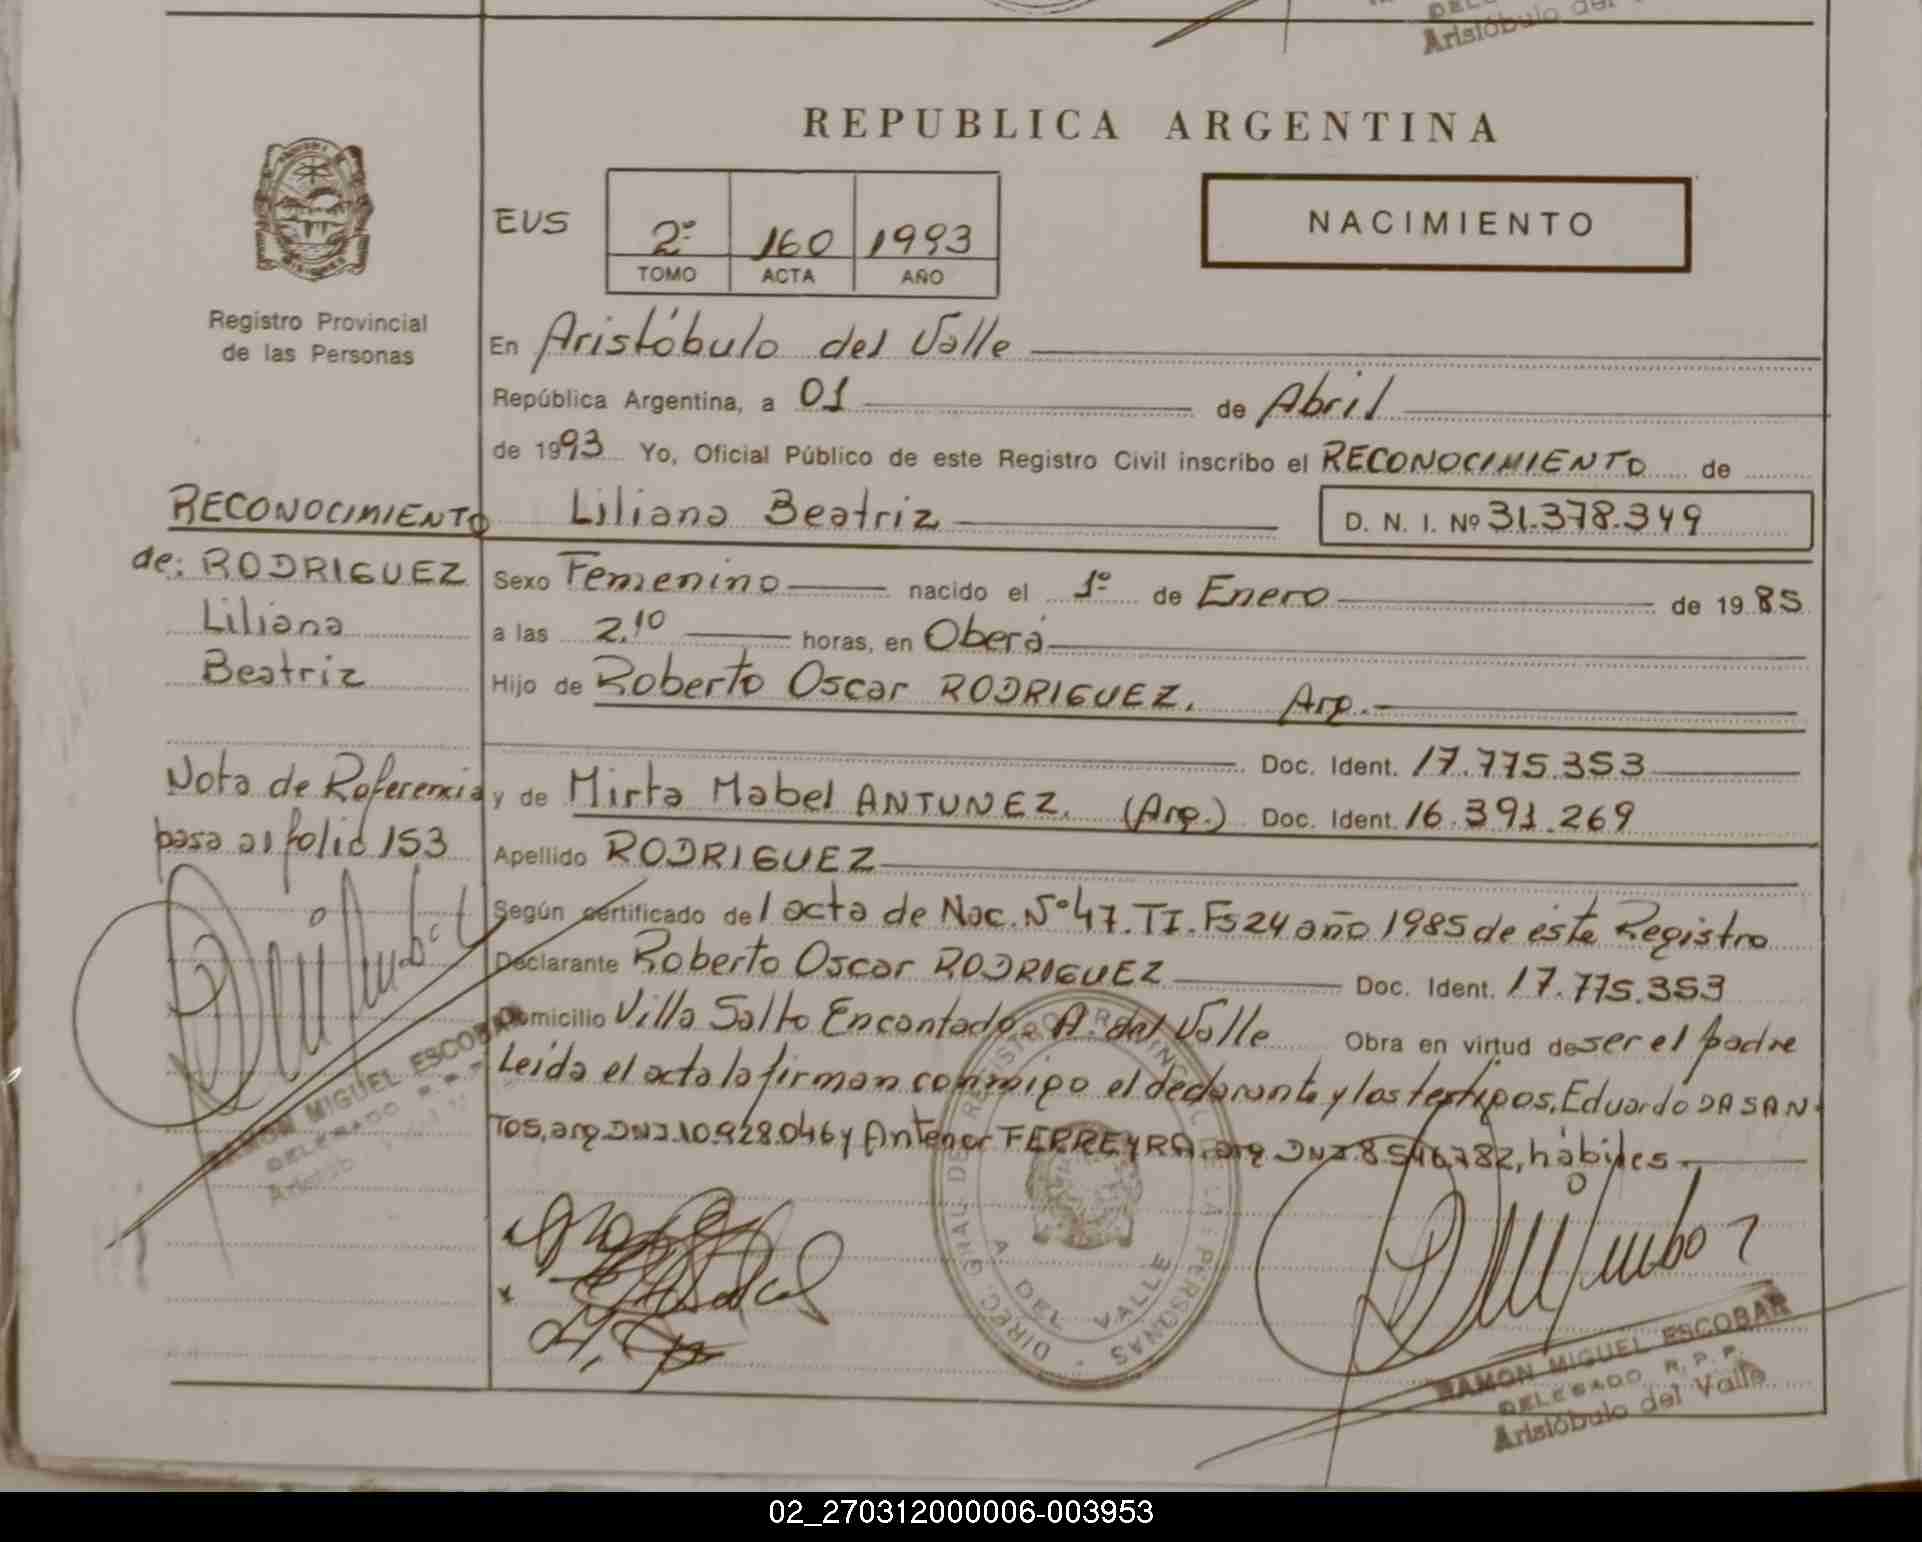 Aristóbulo del
REPUBLICA ARGENTINA
EUS
2º 160 1993
TOMO ACTA AÑO
NACIMIENTO
Registro Provincial
de las Personas
En Aristóbulo del Valle
República Argentina, a 01 de Abril
de 1993 Yo, Oficial Público de este Registro Civil inscribo el RECONOCIMIENTO de
Liliana Beatriz D. N. I. Nº 31.378.349
RECONOCIMIENTO
de: RODRIGUEZ
Liliana
Beatriz
Sexo Femenino nacido el 1º de Enero de 1985
a las 2.10 horas, en Oberá
Hijo de Roberto Oscar RODRIGUEZ. Arg.
Doc. Ident. 17.775.353
y de Mirta Mabel ANTUNEZ. (Arg.) Doc. Ident. 16.391.269
Nota de Referencia
pasa al folio 153
Apellido RODRIGUEZ
Según certificado del acta de Nac. Nº 47. TI. Fs 24 año 1985 de éste Registro
Declarante Roberto Oscar RODRIGUEZ Doc. Ident. 17.775.353
Domicilio Villa Salto Encantado. A. del Valle Obra en virtud de ser el padre
Leída el acta la firman conmigo el declarante y los testigos, Eduardo DA SAN-
TOS, arg. DNI.10.928.046 y Antenor FERREYRA, arg. DNI. 8.546.782, hábiles
RAMON MIGUEL ESCOBAR
DELEGADO R.P.P.
DIREC. GRAL. DEL REGISTRO PROVINCIAL DE LAS PERSONAS
A. DEL VALLE
RAMON MIGUEL ESCOBAR
DELEGADO R.P.P.
Aristóbulo del Valle
02_270312000006-003953